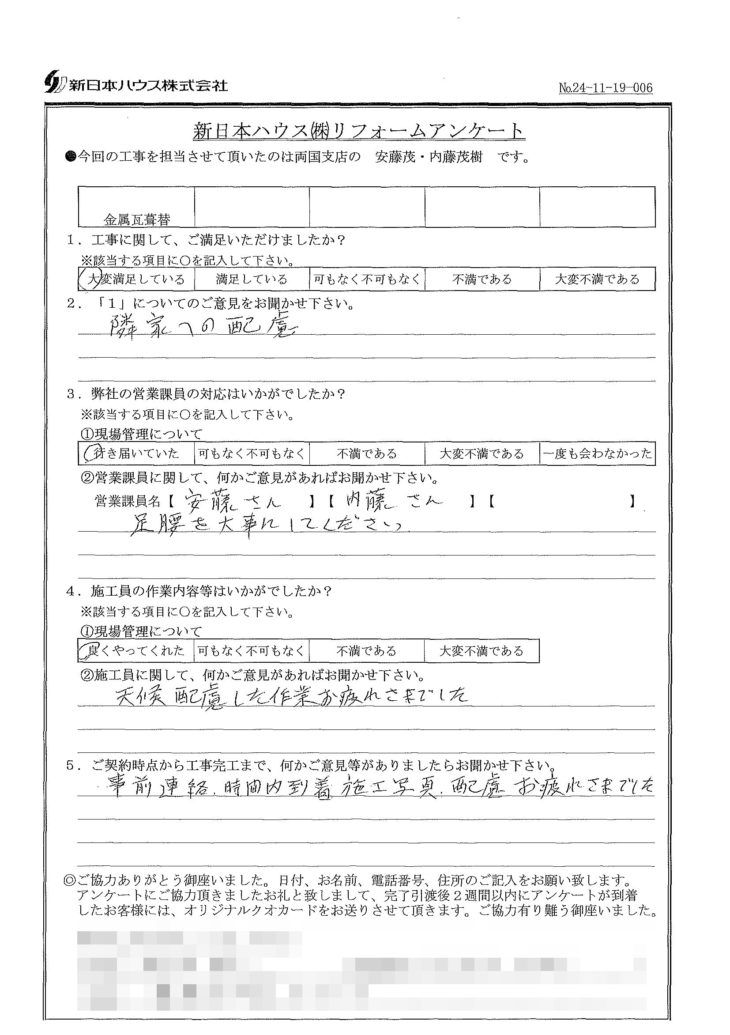 新日本ハウス株式会社
№24-11-19-006
新日本ハウス㈱リフォームアンケート
●今回の工事を担当させて頂いたのは両国支店の 安藤茂・内藤茂樹 です。
金属瓦葺替
1．工事に関して、ご満足いただけましたか？
※該当する項目に○を記入して下さい。
大変満足している 満足している 可もなく不可もなく 不満である 大変不満である
2．「1」についてのご意見をお聞かせ下さい。
隣家への配慮
3．弊社の営業課員の対応はいかがでしたか？
※該当する項目に○を記入して下さい。
①現場管理について
行き届いていた 可もなく不可もなく 不満である 大変不満である 一度も会わなかった
②営業課員に関して、何かご意見があればお聞かせ下さい。
営業課員名【 安藤さん 】【 内藤さん 】【 】
足腰を大事にしてください
4．施工員の作業内容等はいかがでしたか？
※該当する項目に○を記入して下さい。
①現場管理について
良くやってくれた 可もなく不可もなく 不満である 大変不満である
②施工員に関して、何かご意見があればお聞かせ下さい。
天候配慮した作業お疲れさまでした
5．ご契約時点から工事完工まで、何かご意見等がありましたらお聞かせ下さい。
事前連絡、時間内到着 施工写真、配慮 お疲れさまでした
◎ご協力ありがとう御座いました。日付、お名前、電話番号、住所のご記入をお願い致します。
アンケートにご協力頂きましたお礼と致しまして、完了引渡後２週間以内にアンケートが到着
したお客様には、オリジナルクオカードをお送りさせて頂きます。ご協力有り難う御座いました。